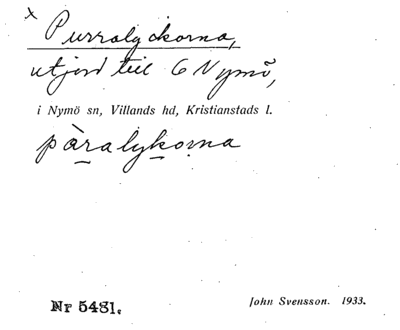 x Purralyckorna,
utjord till 6 Nymö,
i Nymö sn, Villands hd, Kristianstads l.
pàralykorna
Nr 5481.
John Svensson. 1933.